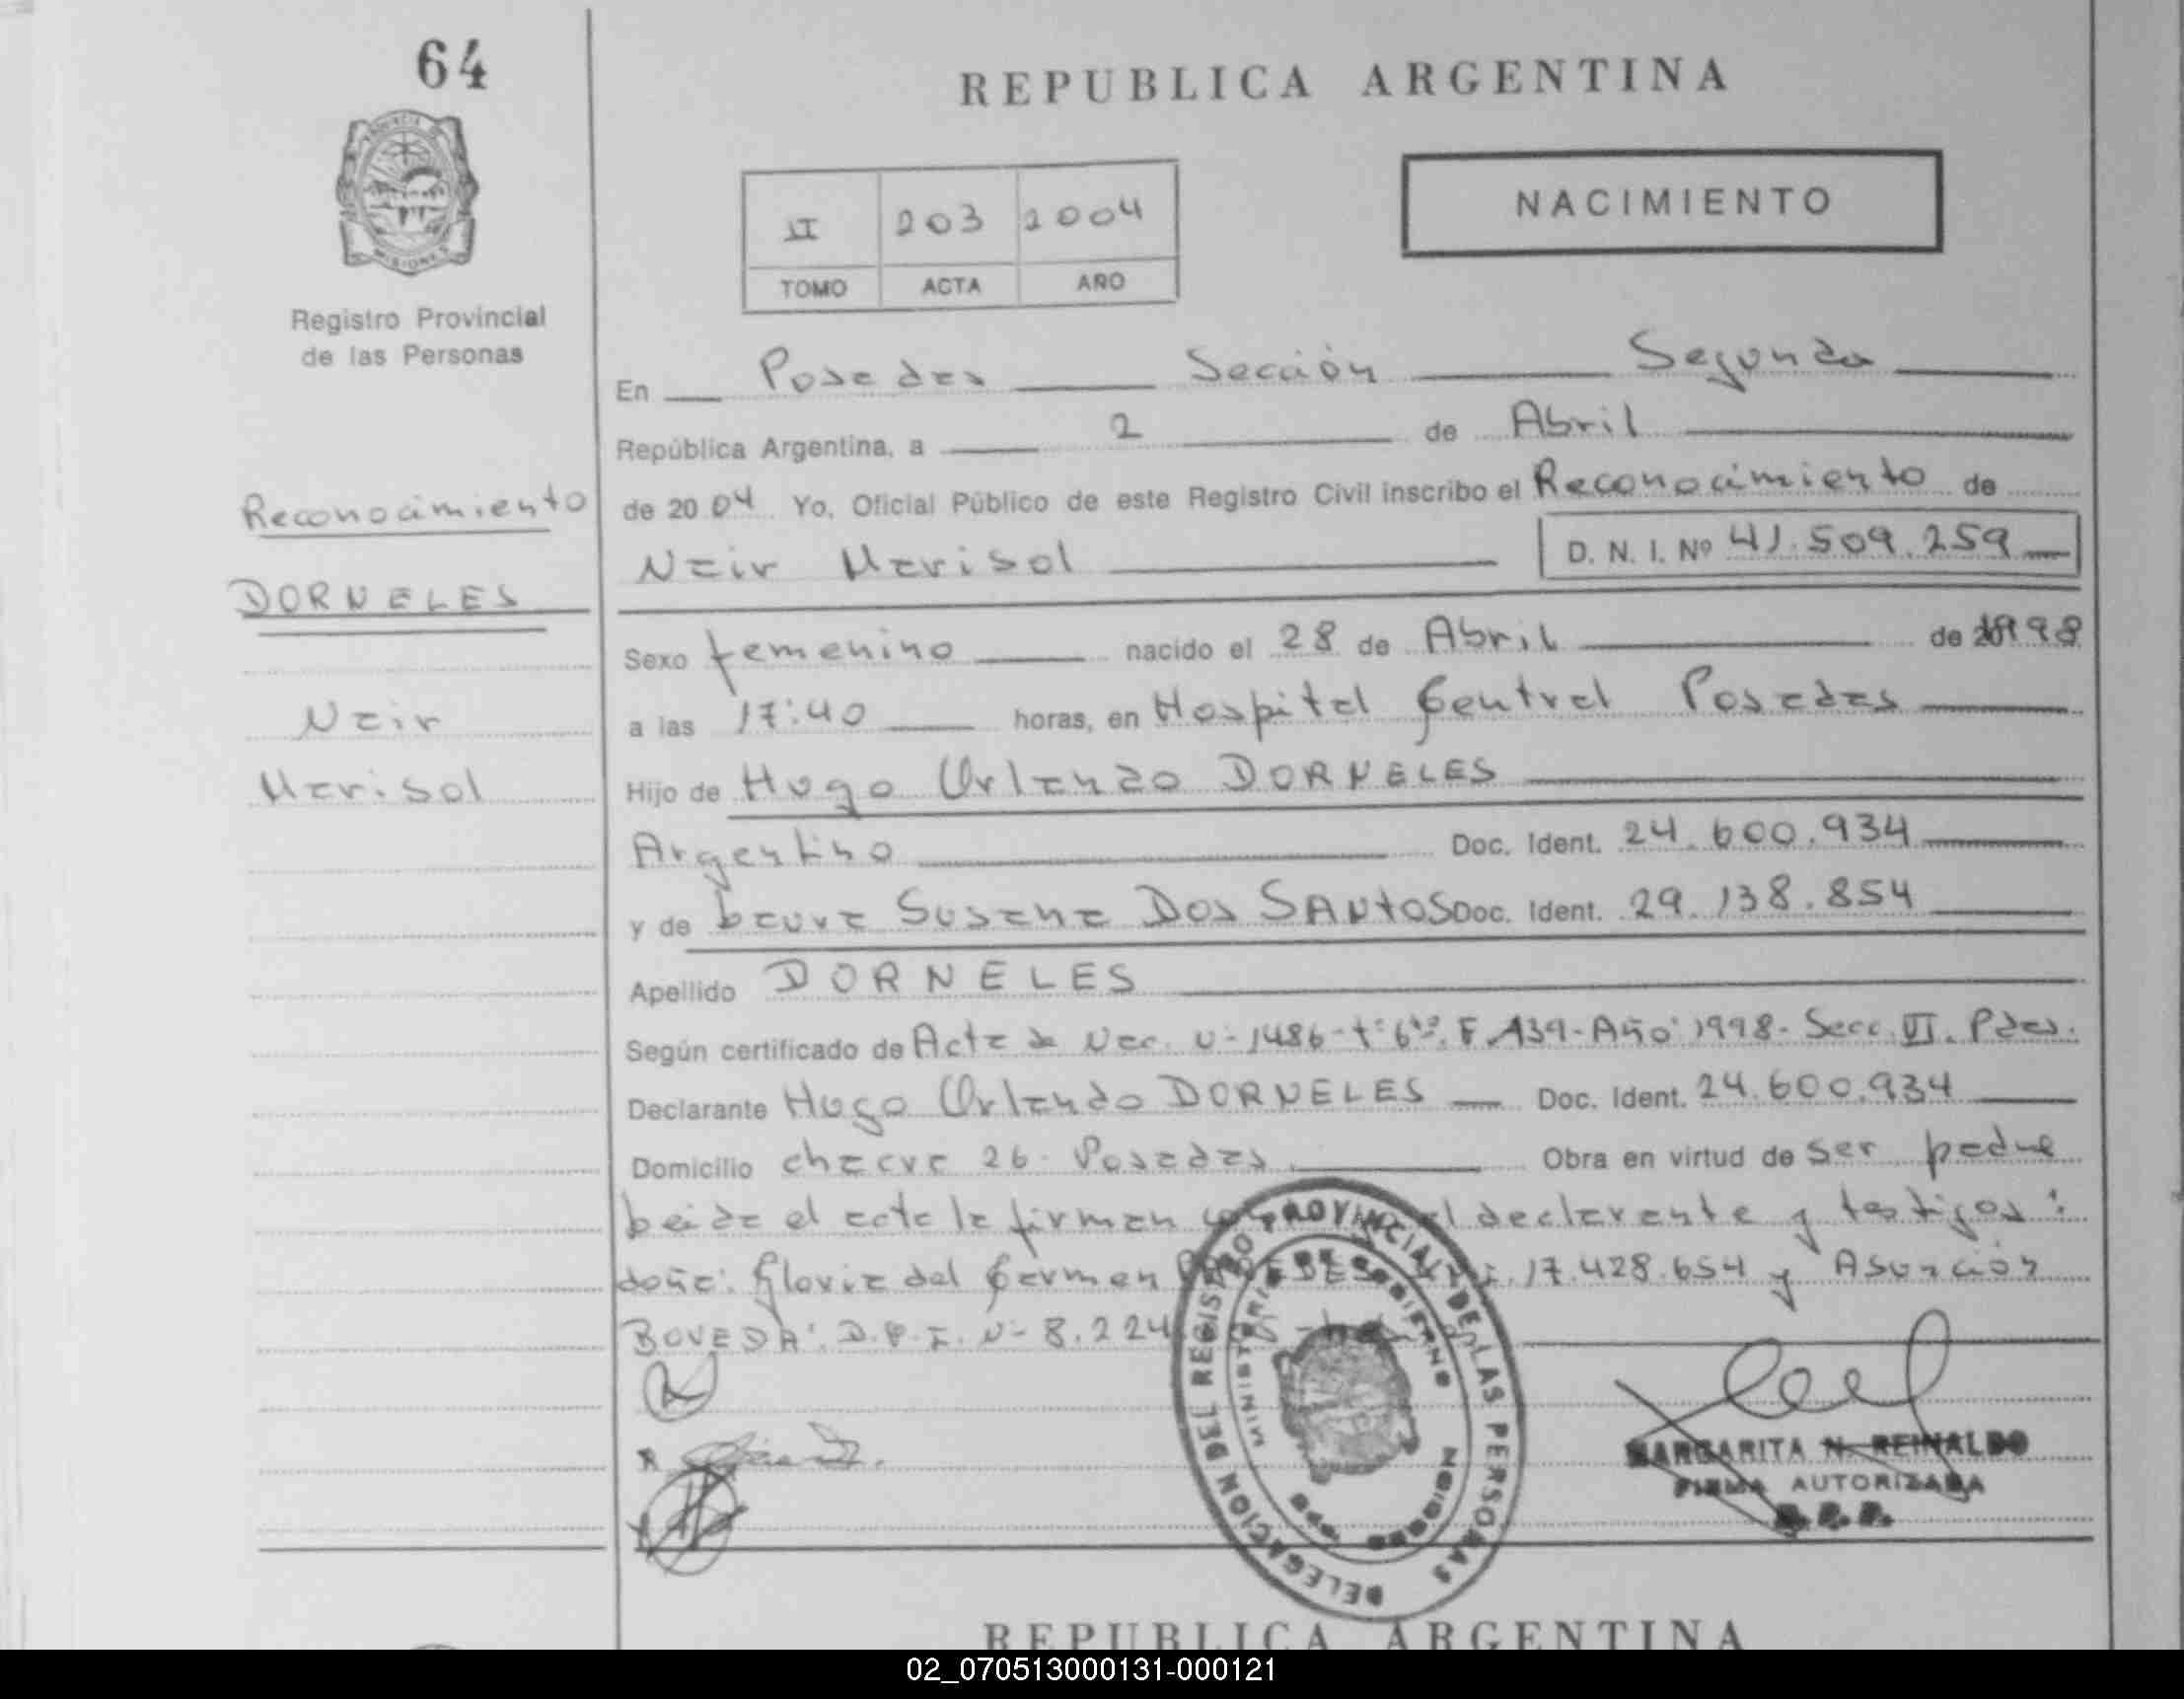 64
REPUBLICA ARGENTINA
NACIMIENTO
II 203 2004
TOMO ACTA AÑO
Registro Provincial
de las Personas
En Posadas Sección Segunda
República Argentina, a 2 de Abril
de 2004 Yo, Oficial Público de este Registro Civil inscribo el Reconocimiento de
Nair Marisol D. N. I. Nº 41.509.259
Reconocimiento
DORNELES
Nair
Marisol
Sexo femenino nacido el 28 de Abril de 1998
a las 17:40 horas, en Hospital Central Posadas
Hijo de Hugo Orlando DORNELES
Argentino Doc. Ident. 24.600.934
y de Laura Susana DOS SANTOS Doc. Ident. 29.138.854
Apellido DORNELES
Según certificado de Acta de Nac. Nº 1486-Tº 6º F. 139-Año 1998- Secc. VI. Pdas.
Declarante Hugo Orlando DORNELES Doc. Ident. 24.600.934
Domicilio chacra 26- Posadas Obra en virtud de ser padre
Leida el acta la firman el declarante y testigos:
doña: Gloria del Carmen 17.428.654 y Asunción
BOVEDA: D.N.I. Nº 8.224
DELEGACION DEL REGISTRO PROVINCIAL DE LAS PERSONAS
MINISTERIO DE GOBIERNO
MISIONES
MARGARITA N. REINALDO
FIRMA AUTORIZADA
REPUBLICA ARGENTINA
02_070513000131-000121